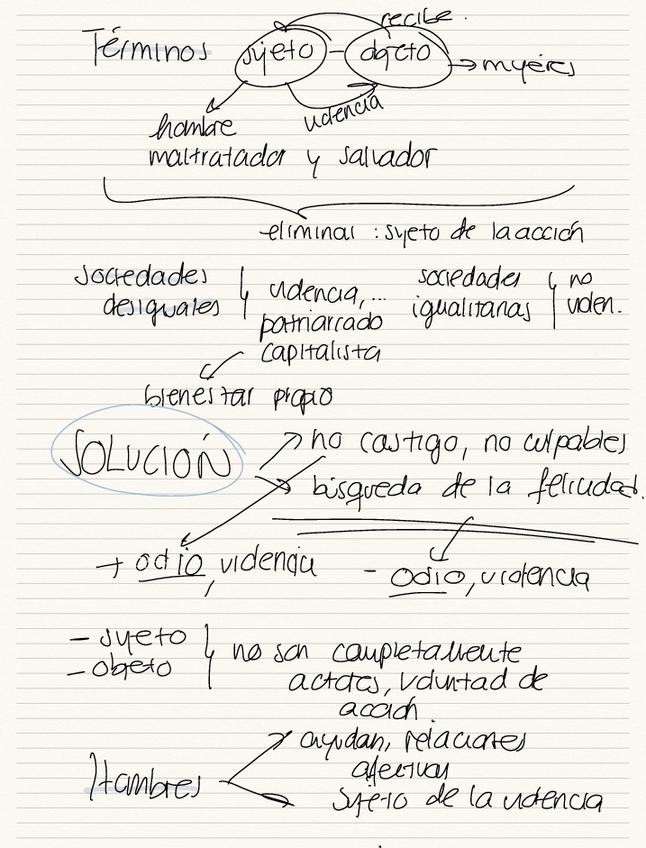 recibe.
Términos sujeto - objeto → mujeres
violencia
hombre
maltratador y salvador
eliminar : sujeto de la acción
sociedades desiguales
violencia, ...
patriarcado
capitalista
sociedades igualitarias
no violen.
bienestar propio
SOLUCIÓN
no castigo, no culpables
búsqueda de la felicidad.
+ odio, violencia
- odio, violencia
- sujeto
- objeto
no son completamente
actores, voluntad de
acción.
Hombres
ayudan, relaciones
afectivas
sujeto de la violencia